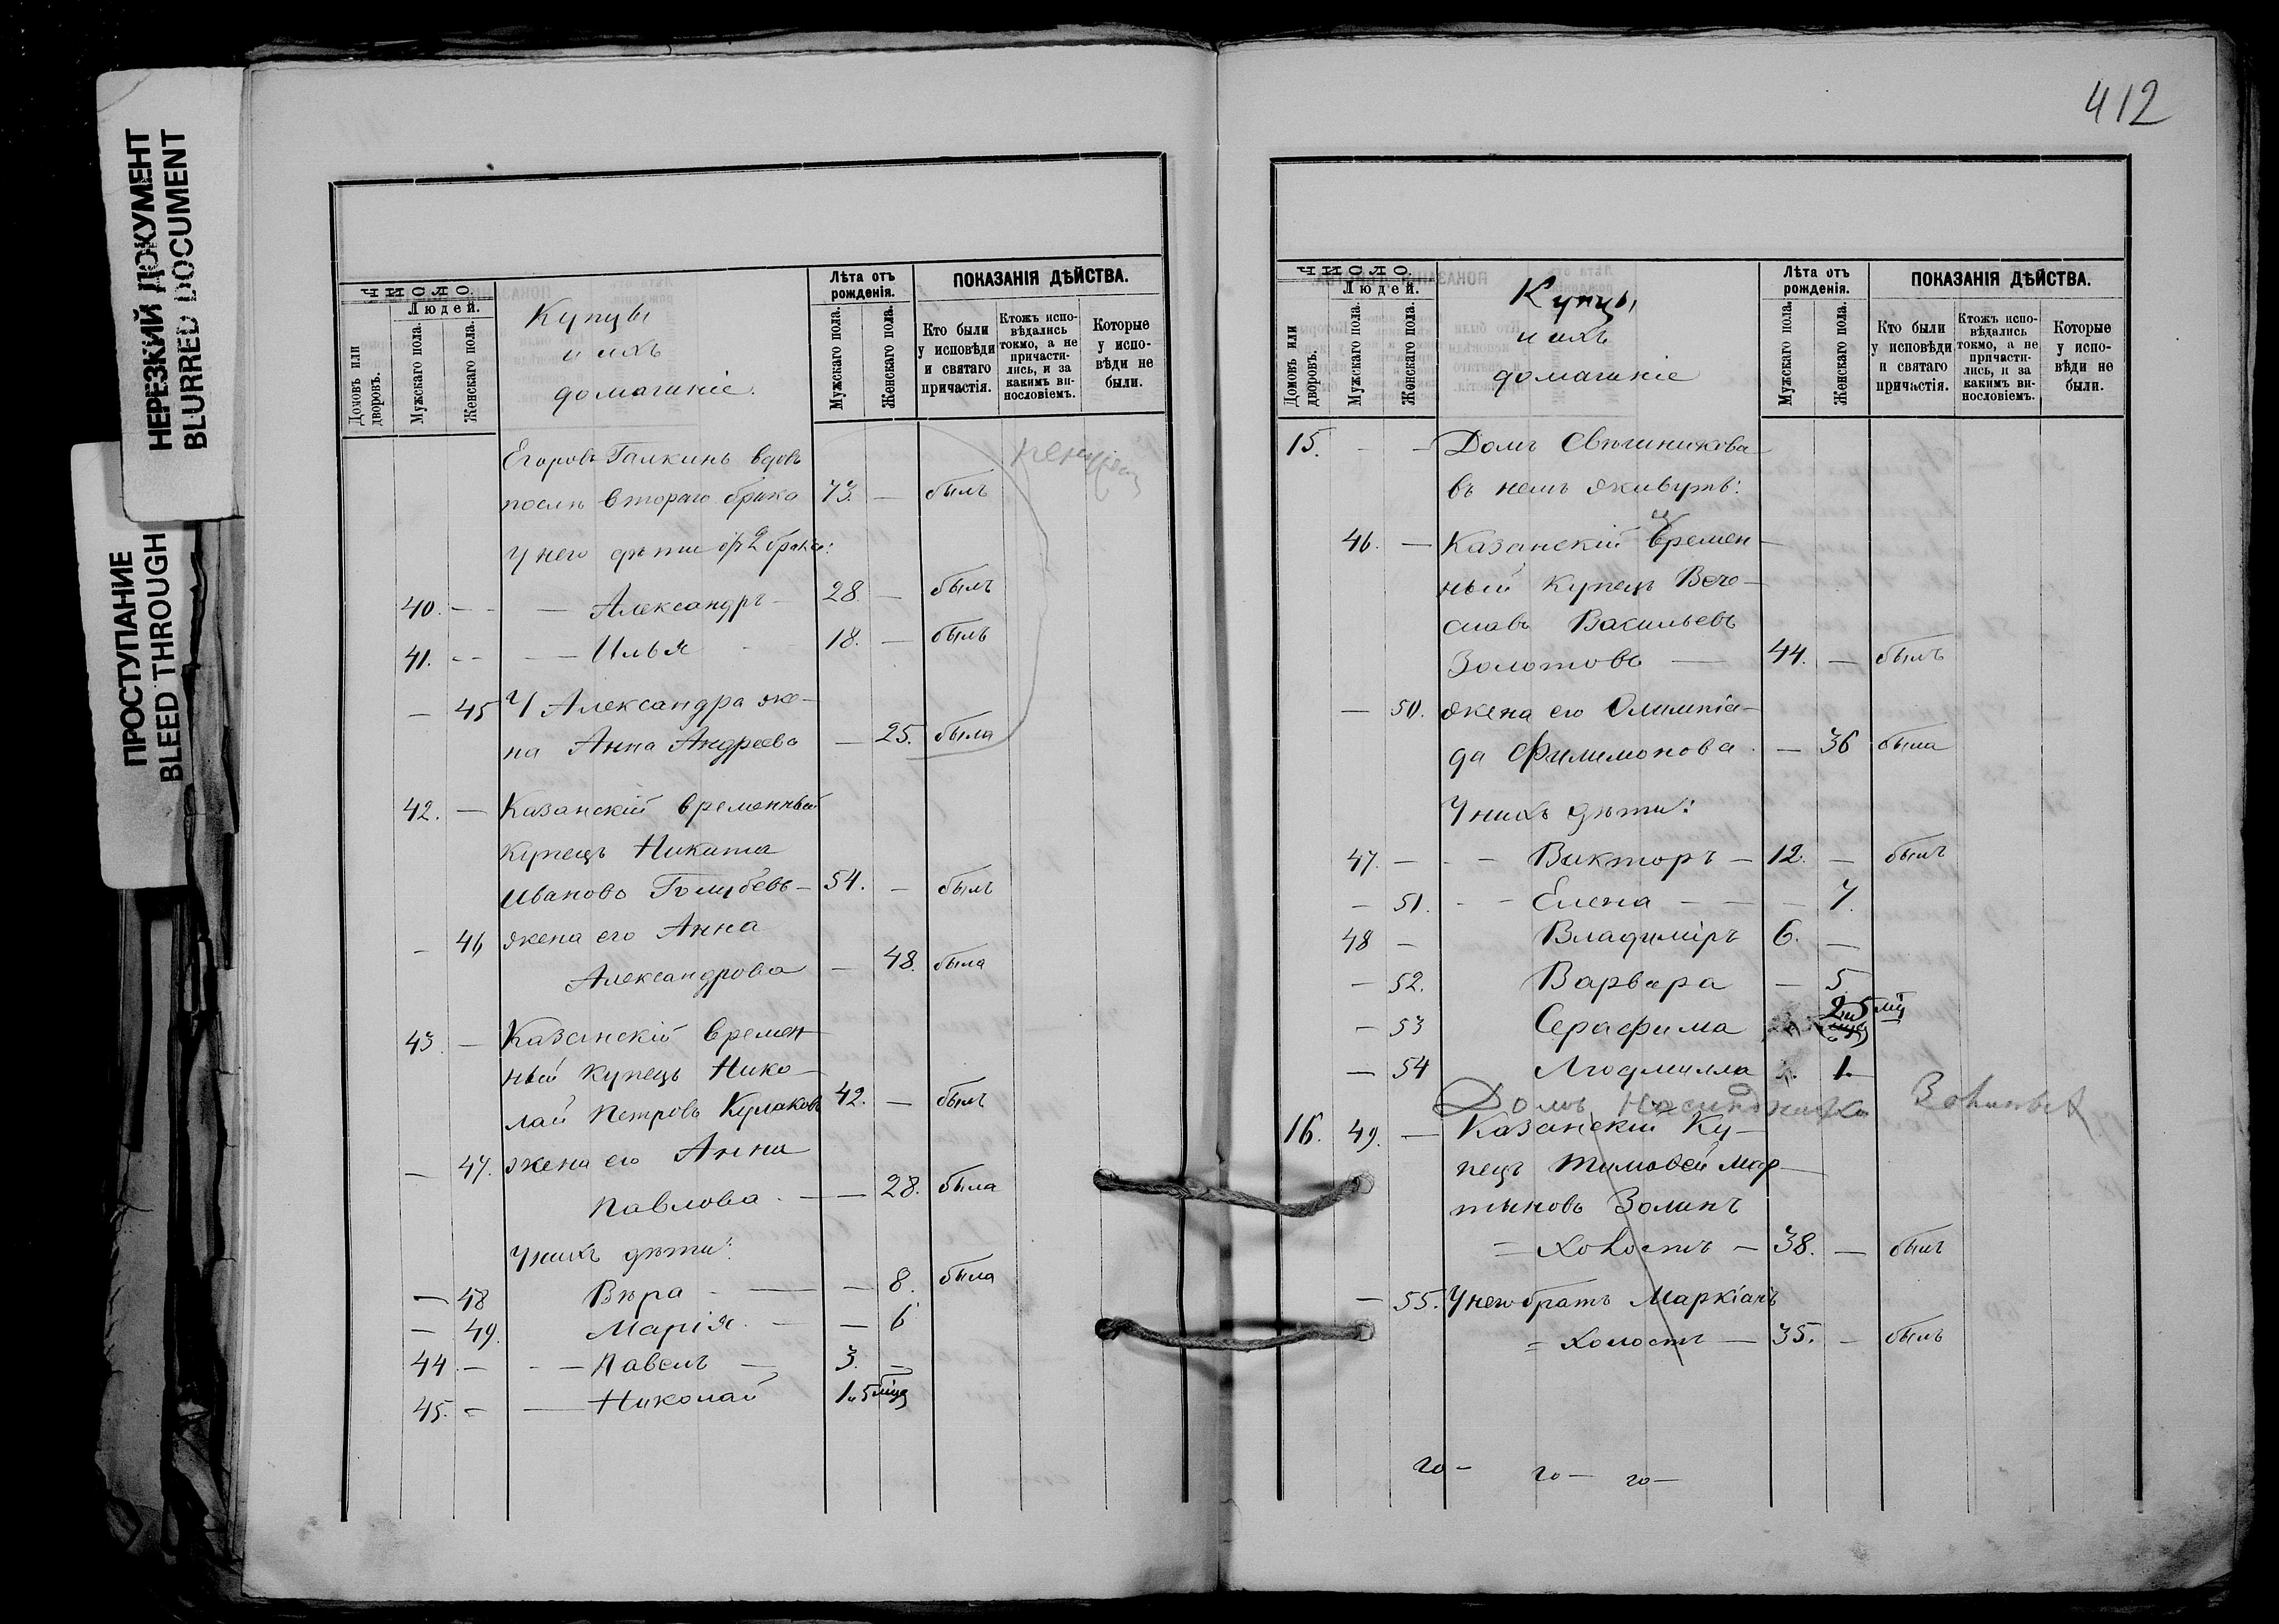 НЕРЕЗКИЙ ДОКУМЕНТ
BLURRED DOCUMENT
ПРОСТУПАНИЕ
BLEED THROUGH
ЧИСЛО.
Домовъ или дворовъ.
Людей.
Мужскаго пола.
Женскаго пола.
Купцы
и ихъ
домашніе.
Лѣта отъ рожденія.
Мужскаго пола.
Женскаго пола.
ПОКАЗАНІЯ ДѢЙСТВА.
Кто были у исповѣди и святаго причастія.
Ктожъ испо-вѣдались токмо, а не причасти-лись, и за какимъ ви-нословіемъ.
Которые у испо-вѣди не были.
Егоровъ Галкинъ вдовъ
послѣ втораго брака 73. — былъ
У него дѣти отъ 2 брака:
40. — — Александръ — 28 — былъ
41. — — Илья 18. — былъ
— 45 У Александра же-
на Анна Андреева — 25. была
42. — Казанскій временный
купецъ Никита
Ивановъ Голубевъ — 54. — былъ
— 46 жена его Анна
Александрова — 48. была
43. — Казанскій времен-
ный купецъ Нико-
лай Петровъ Кулаковъ 42. — былъ
— 47. жена его Анна
Павлова — — 28. была
У нихъ дѣти:
— 48 Вѣра — — 8. была
— 49. Марія — — 6
44 — — Павелъ — 3. —
45. — — Николай 1 и 5 мцъ
412
ЧИСЛО.
Домовъ или дворовъ.
Людей.
Мужскаго пола.
Женскаго пола.
Купцы
и ихъ
домашніе
Лѣта отъ рожденія.
Мужскаго пола.
Женскаго пола.
ПОКАЗАНІЯ ДѢЙСТВА.
Кто были у исповѣди и святаго причастія.
Ктожъ испо-вѣдались токмо, а не причасти-лись, и за какимъ ви-нословіемъ.
Которые у испо-вѣди не были.
15. — — Домъ Свѣшникова
въ немъ живутъ:
46. — Казанскій времен-
ный купецъ Вече-
славъ Васильевъ
Золотовъ — 44. — былъ
— 50. жена его Олимпіа-
да Филимонова — 36 была
У нихъ дѣти:
47. — — Викторъ — 12. — былъ
— 51. — Елена — — 7.
48 — Владиміръ 6. —
— 52. Варвара — 5
— 53 Серафима 2 и 5 мц
— 54 Людмилла 1.
Домъ
16. 49. — Казанскій Ку-
пецъ Тимофей Мар-
тыновъ Золинъ
= холостъ — 38. — былъ
— 55. У него братъ Маркіанъ
= холостъ — 35. — былъ